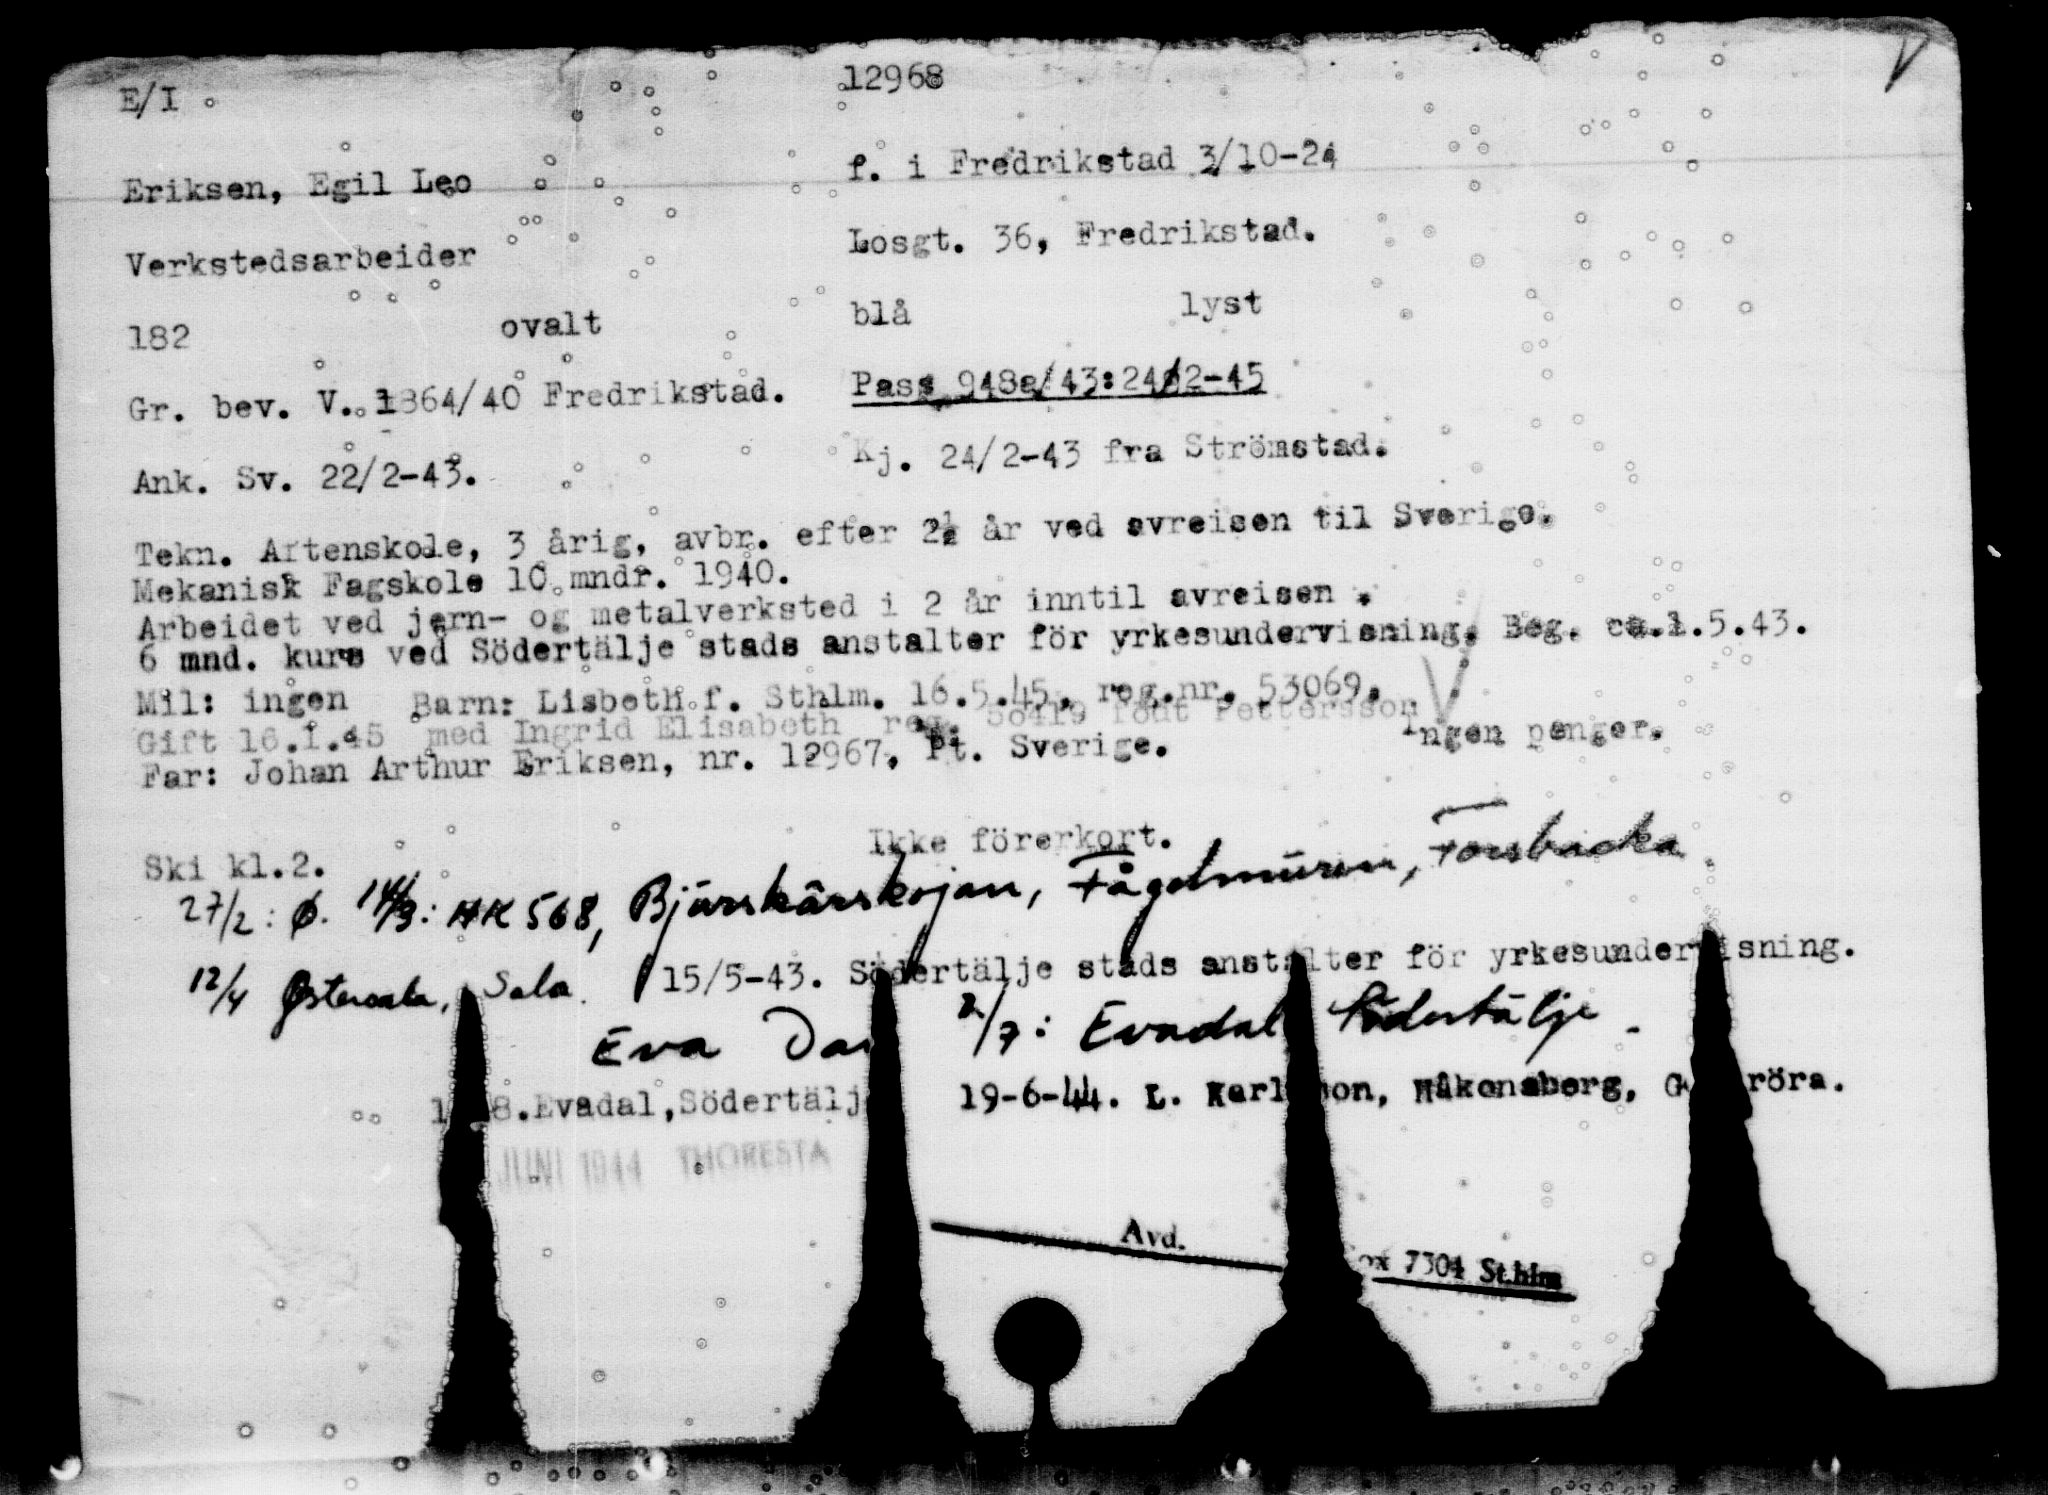 E/I 12968
Eriksen, Egil Leo f. i Fredrikstad 3/10-24
Verkstedsarbeider Losgt. 36, Fredrikstad.
182 ovalt blå lyst
Gr. bev. V. 1864/40 Fredrikstad. Pass 948a/43:24/2-45
Ank. Sv. 22/2-43. Kj. 24/2-43 fra Strömstad.
Tekn. Aftenskole, 3 årig, avbr. efter 2½ år ved avreisen til Sverige.
Mekanisk Fagskole 10 mndr. 1940.
Arbeidet ved jern- og metalverksted i 2 år inntil avreisen .
6 mnd. kurs ved Södertälje stads anstalter för yrkesundervisning. Beg. ca.1.5.43.
Mil: ingen Barn: Lisbeth f. Sthlm. 16.5.45, reg.nr. 53069.
Gift 16.1.45 med Ingrid Elisabeth reg. födt Pettersson
Ingen penger.
Far: Johan Arthur Eriksen, nr. 12967, Pt. Sverige.
Ski kl.2. Ikke förerkort.
27/2: Ø. 14/3: HK 568, Bjurskärskojan, Fågelmuren, Forsbacka
12/4 Østersala, Sala. 15/5-43. Södertälje stads anstalter för yrkesundervisning.
Eva 2/7: Evadal Södertälje.
8.Evadal, 19-6-44. L. Håkonsberg,
JUNI 1944 THORESTA
Avd. 7304 Sthlm